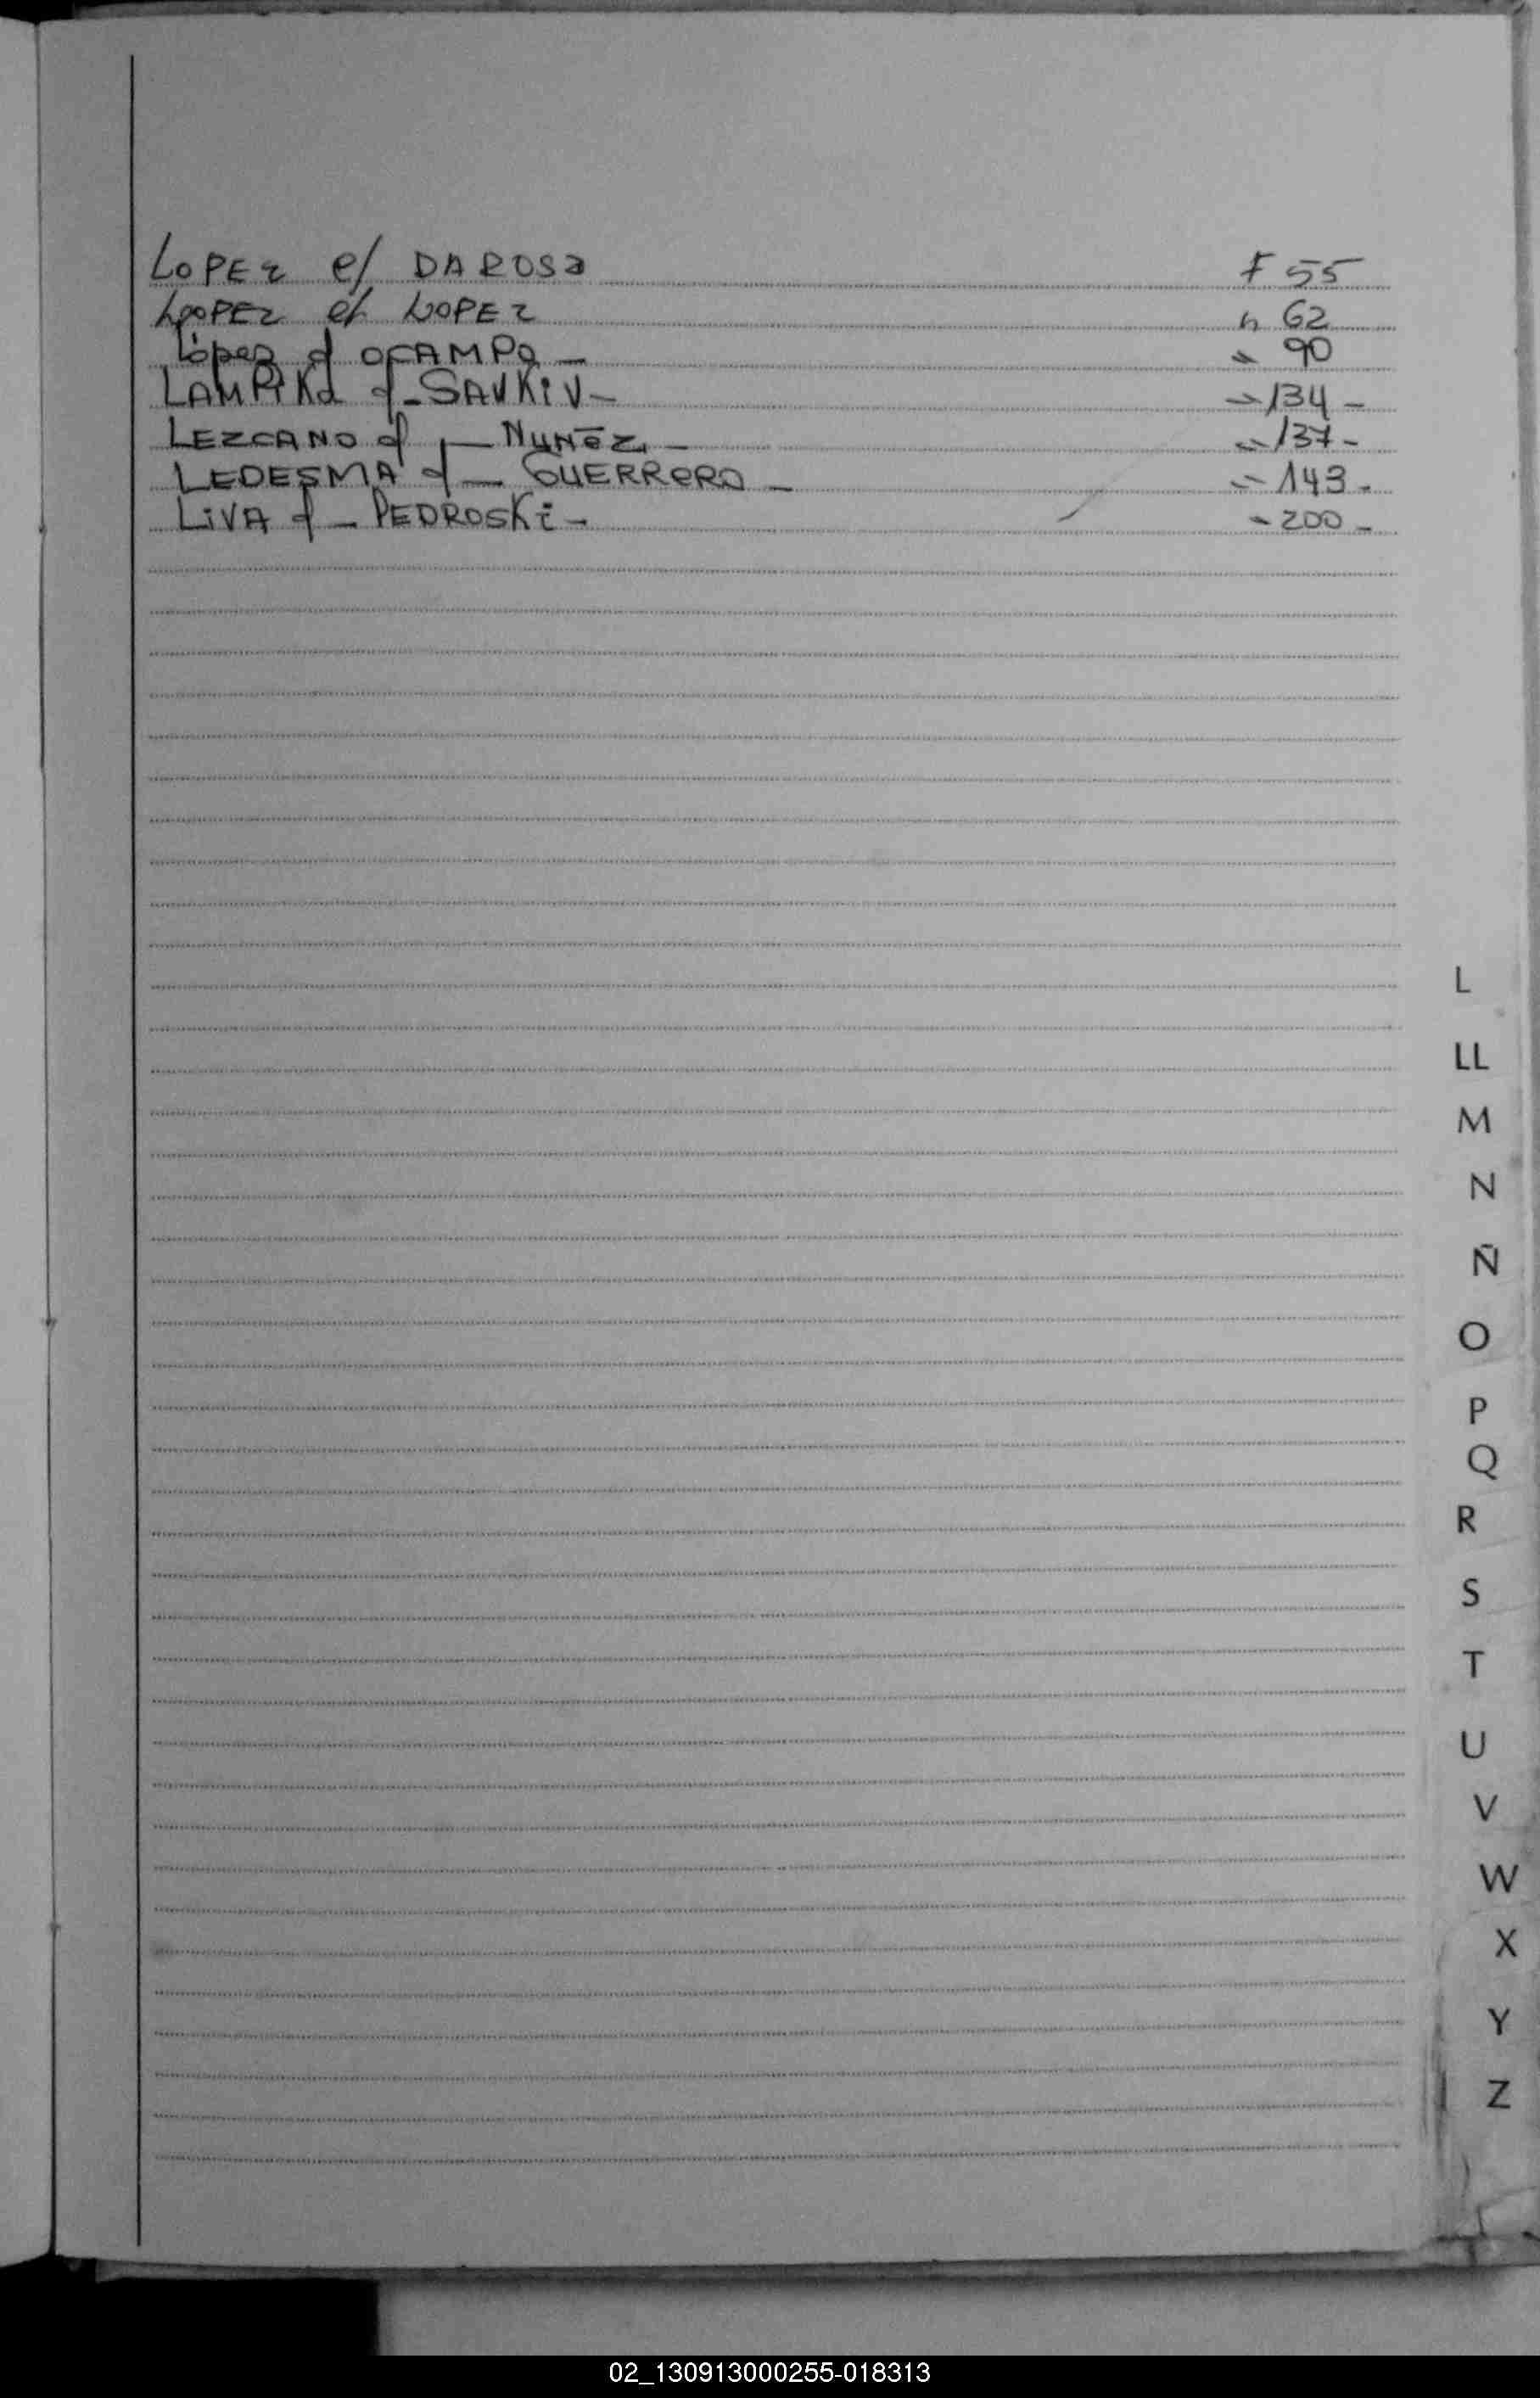 LOPEZ c/ DAROSA F 55
LOPEZ c/ LOPEZ " 62
López c/ OCAMPO - " 90
c/ - SAVKIV - " 134 -
LEZCANO c/ - NUÑEZ - " 137 -
LEDESMA c/ - GUERRERO - " 143 -
LIVA c/ - PEDROSKI - " 200 -
L
LL
M
N
Ñ
O
P
Q
R
S
T
U
V
W
X
Y
Z
02_130913000255-018313